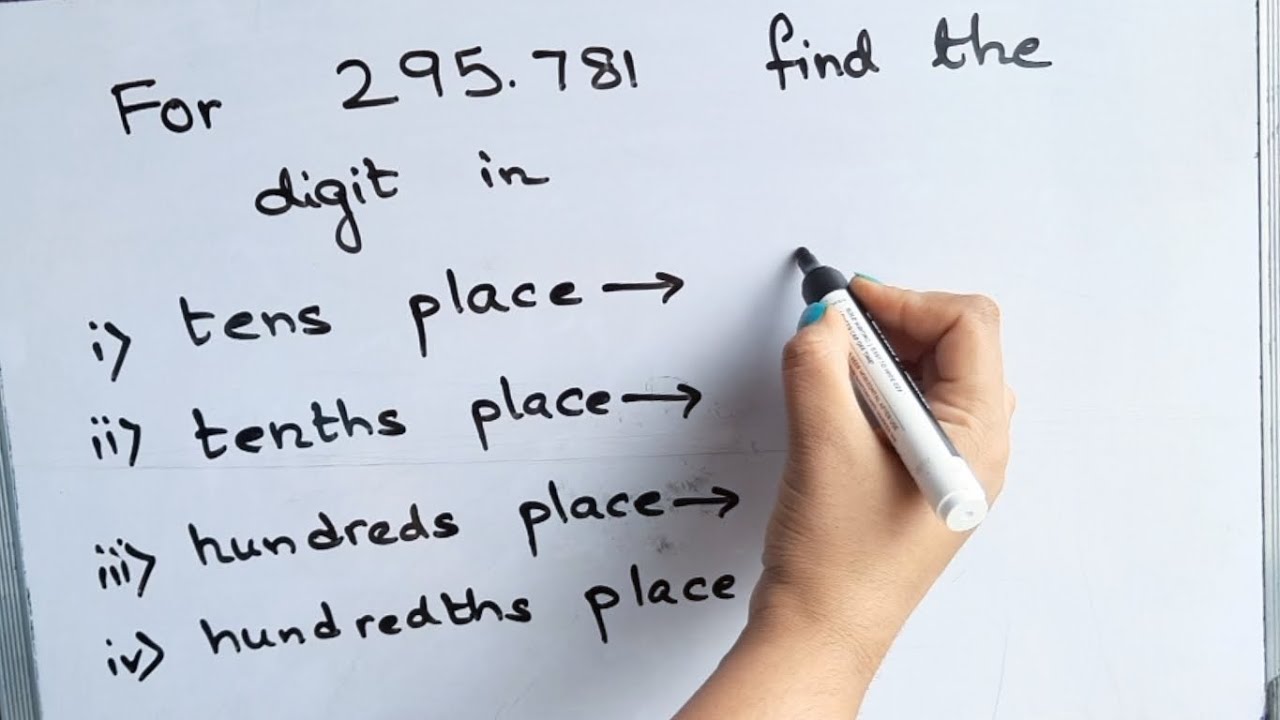 For 295.781 find the
digit in
i) tens place →
ii) tenths place →
iii) hundreds place →
iv) hundredths place